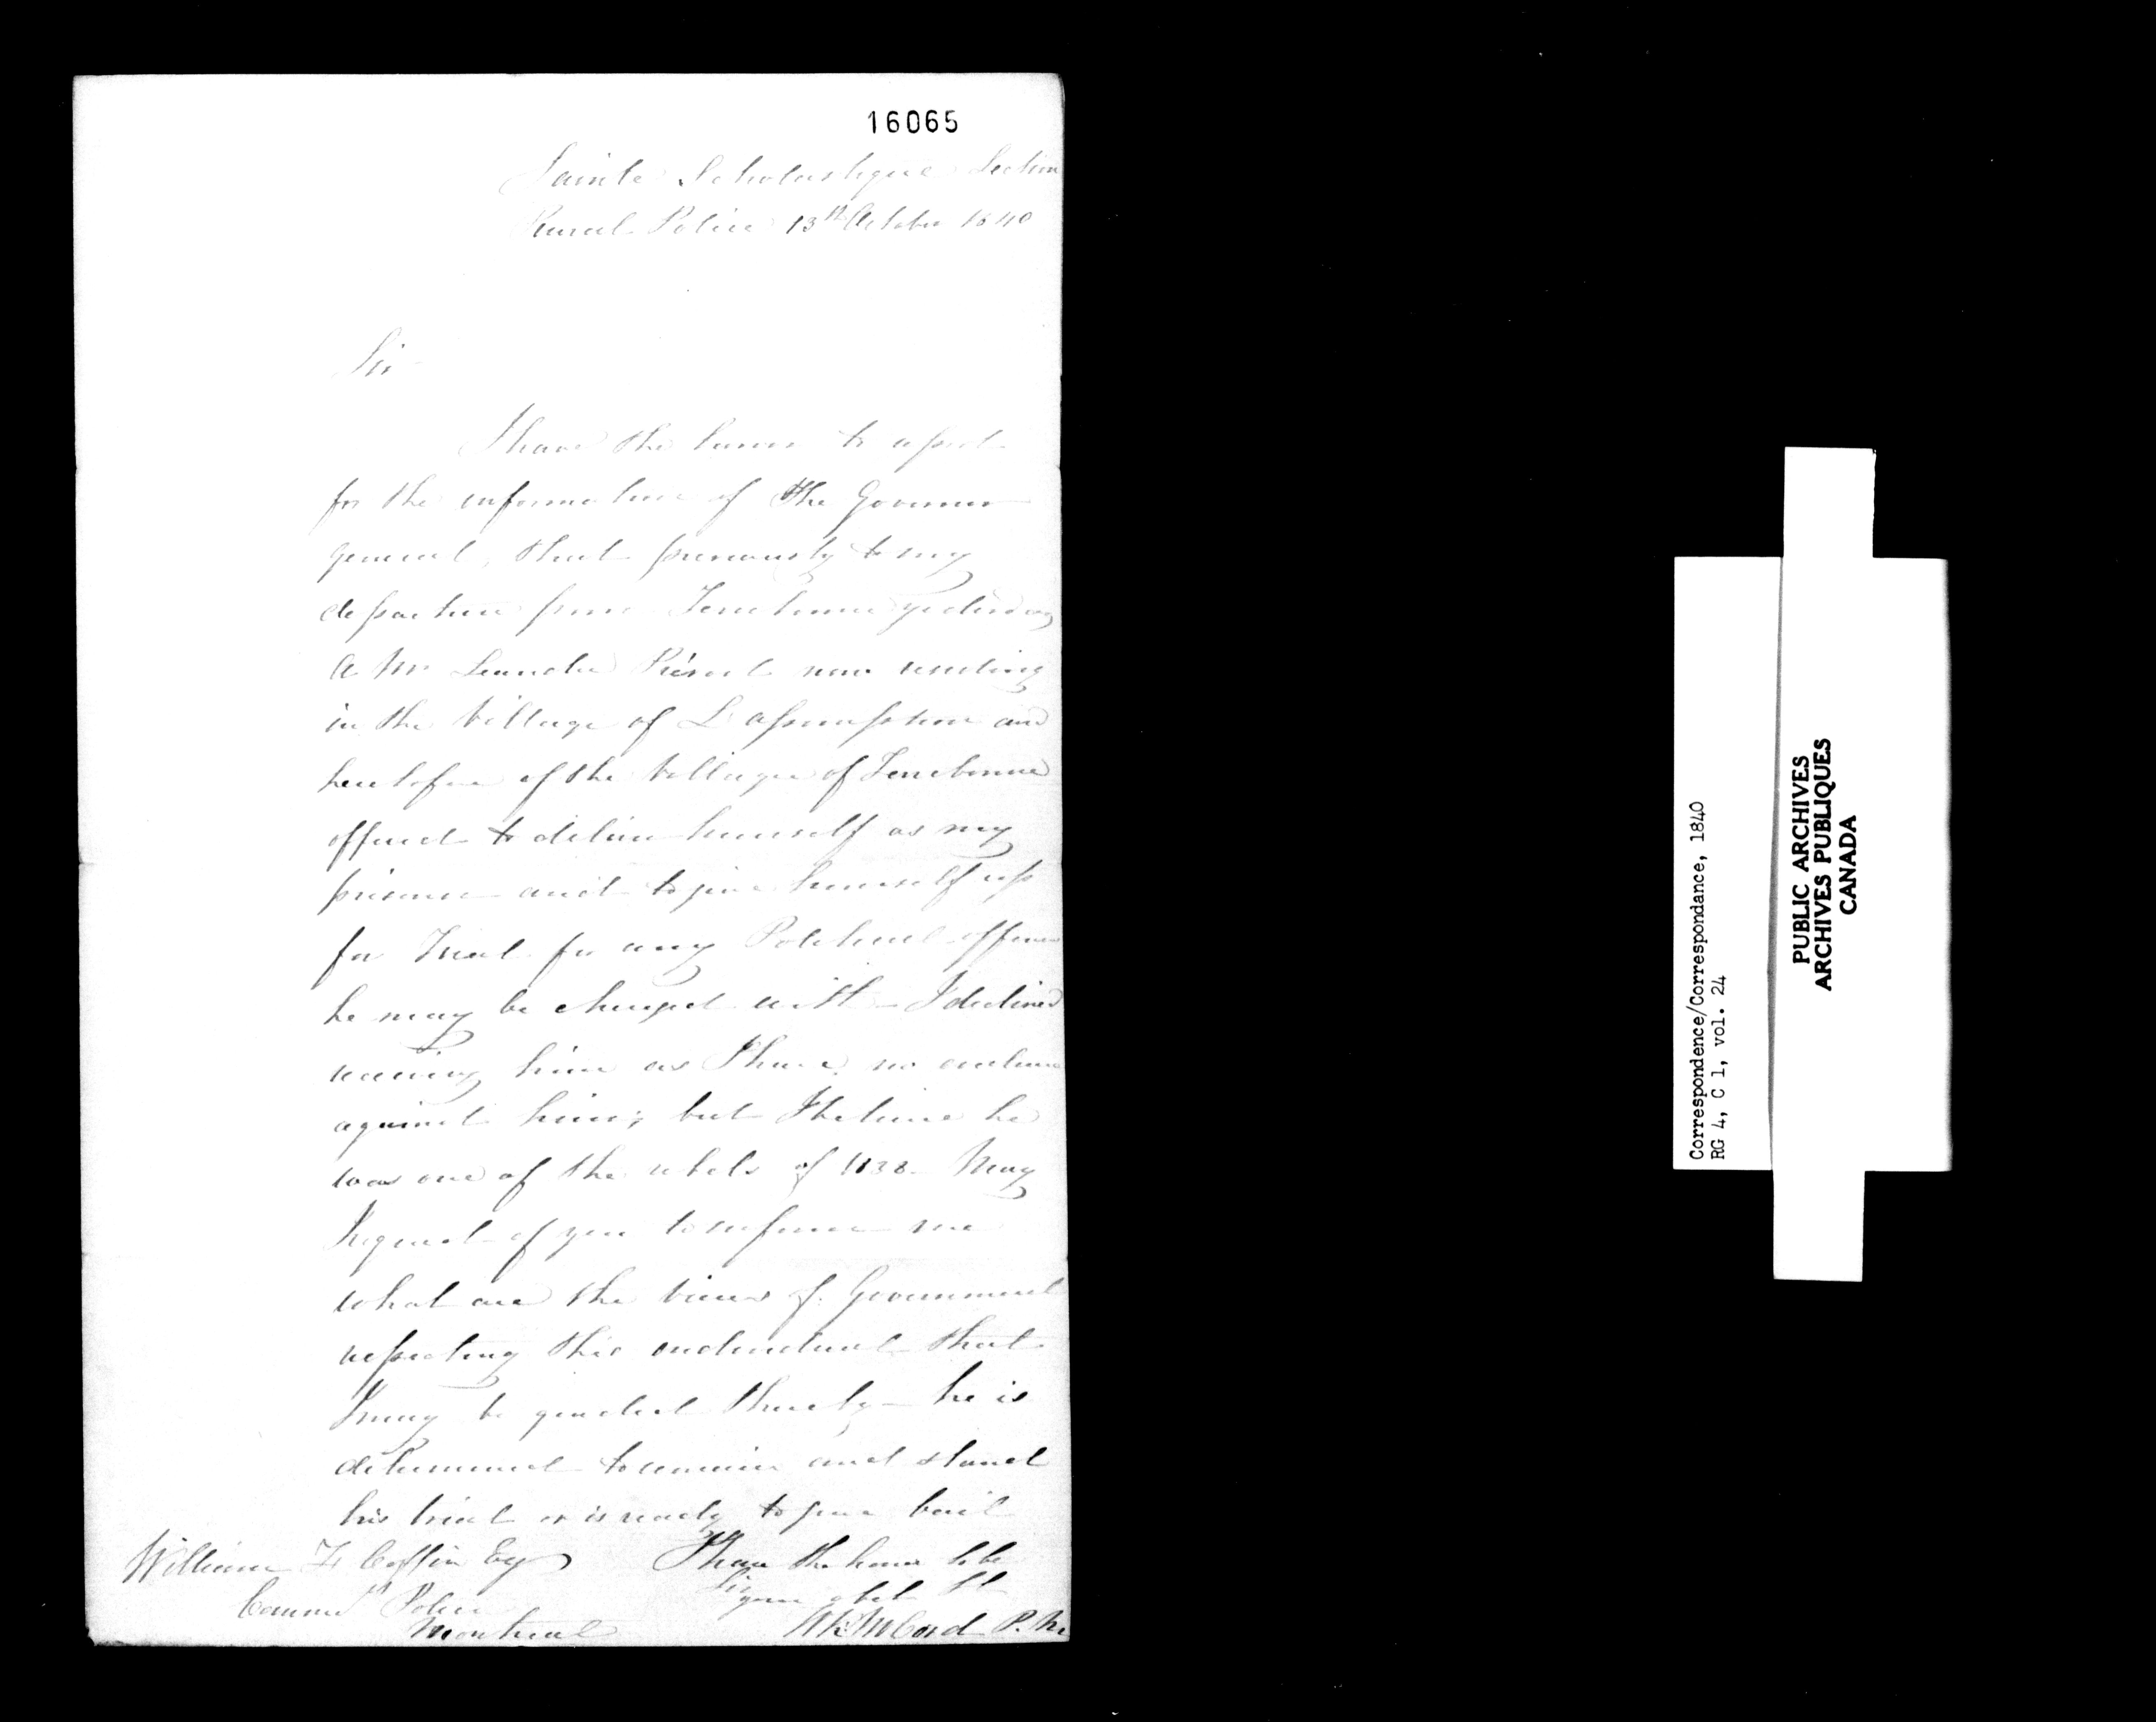 16065
Sainte Scholastique Section
Rural Police 13th October 1840
Sir
I have the honor to report
for the information of The Governor
General, that previously to my
departure from Terrebonne yesterday
a Mr Leandre Prévost now residing
in the Village of L'assumption and
heretofore of the Village of Terrebonne
offered to deliver himself as my
prisoner and to give himself up
for Trial for any Political offence
he may be charged with - I declined
receiving him as I have no evidence
against him; but I believe he
was one of the rebels of 1838. May
I request of you to inform me
what are the views of Government
respecting this individual that
I may be guided thereby - he is
determined to remain and stand
his trial or is ready to give bail
William F. Coffin Esq
Commr Police
Montreal
I have the honor to be
Sir
your obet St
McCord P. M.
Correspondence/Correspondance, 1840
RG 4, C 1, vol. 24
PUBLIC ARCHIVES
ARCHIVES PUBLIQUES
CANADA